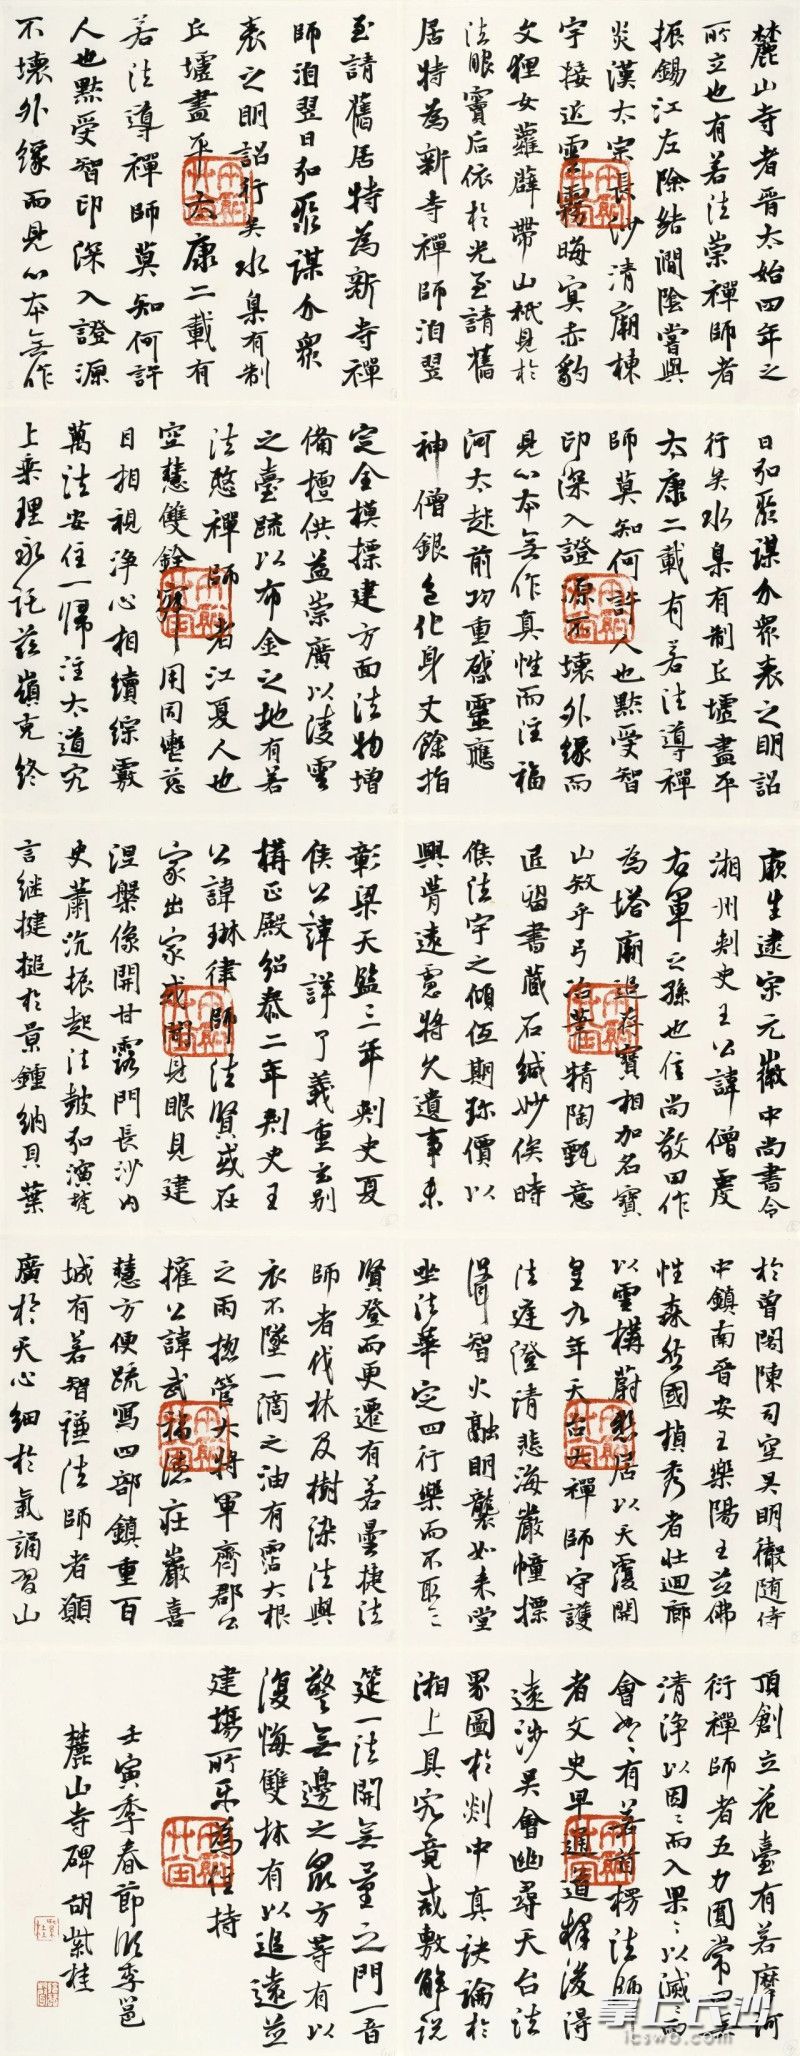 麓山寺者晋太始四年之
所立也有若法崇禪師者
振錫江左除結澗陰嘗與
炎漢太宗長沙清廟棟
宇接近雲霧晦冥赤豹
文狸女蘿薜帶山祇見於
法眼竇后依於光至請舊
居特為新寺禪師洎翌
至請舊居特為新寺禪
師洎翌日弘聚謀介眾
表之明詔行矣水臬有制
丘墟盡平太康二載有
若法導禪師莫知何許
人也默受智印深入證源
不壞外緣而見心本無作
日弘聚謀介眾表之明詔
行矣水臬有制丘墟盡平
太康二載有若法導禪
師莫知何許人也默受智
印深入證源不壞外緣而
見心本無作真性而注福
河大起前功重啟靈應
神僧銀色化身丈餘指
定全模標建方面法物增
備檀供益崇廣以淩雲
之臺疏以布金之地有若
法愍禪師者江夏人也
空慧雙銓寂用同轡慈
目相視淨心相續綜覈
萬法安住一歸注大道究
上乘理永託茲嶺克終
厥生逮宋元徽中尚書令
湘州刺史王公諱僧虔
右軍之孫也信尚敬田作
為塔廟追存寶相加名寶
山敎乎弓冶筆精陶甄意
匠留書藏石緘妙俟時
候法宇之傾低期珍價以
興賞遠慮將久遺事未
彰梁天監三年刺史夏
侯公諱詳了義重玄別
構正殿紹泰二年刺史王
公諱琳律師法賢或在
家出家或聞見眼見建
涅槃像開甘露門長沙內
史蕭沆振起法鼓弘演號
言繼揵搥於景鍾納貝葉
於曾閣陳司空吳明徹随侍
中鎮南晉安王樂陽王並佛
性森然國楨秀者壯迴廊
以雲構蔚懸居以天覆開
皇九年天台大禪師守護
法庭澄清悲海嚴幢標
聳智火融明襲如来堂
坐法華定四行樂而不取三
賢登而更遷有若曇捷法
師者伐林及樹染法與
衣不墜一滴之油有霑大根
之雨揔管大將軍齊郡公
權公諱武福德莊嚴喜
慧方便疏寫四部鎮重百
城有若智謙法師者願
廣於天心細於氣誦習山
頂創立花臺有若摩訶
衍禪師者五力圓常四無
清淨以因々而入果々以滅々而
會如々有若首楞法師
者文史早通道釋後得
遠涉吳會幽尋天台法
界圖於剡中真訣論於
湘上具究竟戒敷解説
筵一法開無量之門一音
警無邊之眾方等有以
復悔雙林有以追遠並
建塲所乐為住持
壬寅季春節临李邕
麓山寺碑胡紫桂
掌上长沙
icswb.com